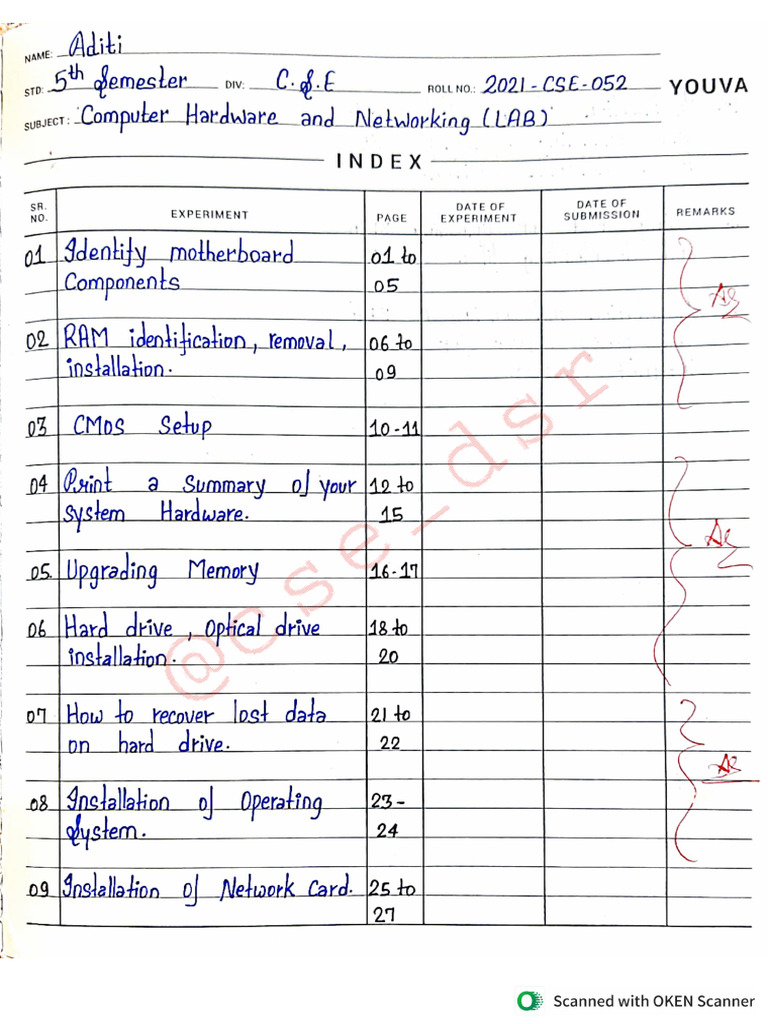 NAME: Aditi
STD: 5th Semester DIV: C.S.E ROLL NO.: 2021-CSE-052 YOUVA
SUBJECT: Computer Hardware and Networking (LAB)
INDEX
SR. NO. EXPERIMENT PAGE DATE OF EXPERIMENT DATE OF SUBMISSION REMARKS
01 Identify motherboard 01 to
Components 05
02 RAM identification, removal, 06 to
installation. 09
03 CMOS Setup 10-11
04 Print a Summary of your 12 to
System Hardware. 15
05. Upgrading Memory 16-17
06 Hard drive, Optical drive 18 to
installation. 20
07 How to recover lost data 21 to
on hard drive. 22
08 Installation of Operating 23-
System. 24
09 Installation of Network Card. 25 to
27
@cse_dsr
Scanned with OKEN Scanner